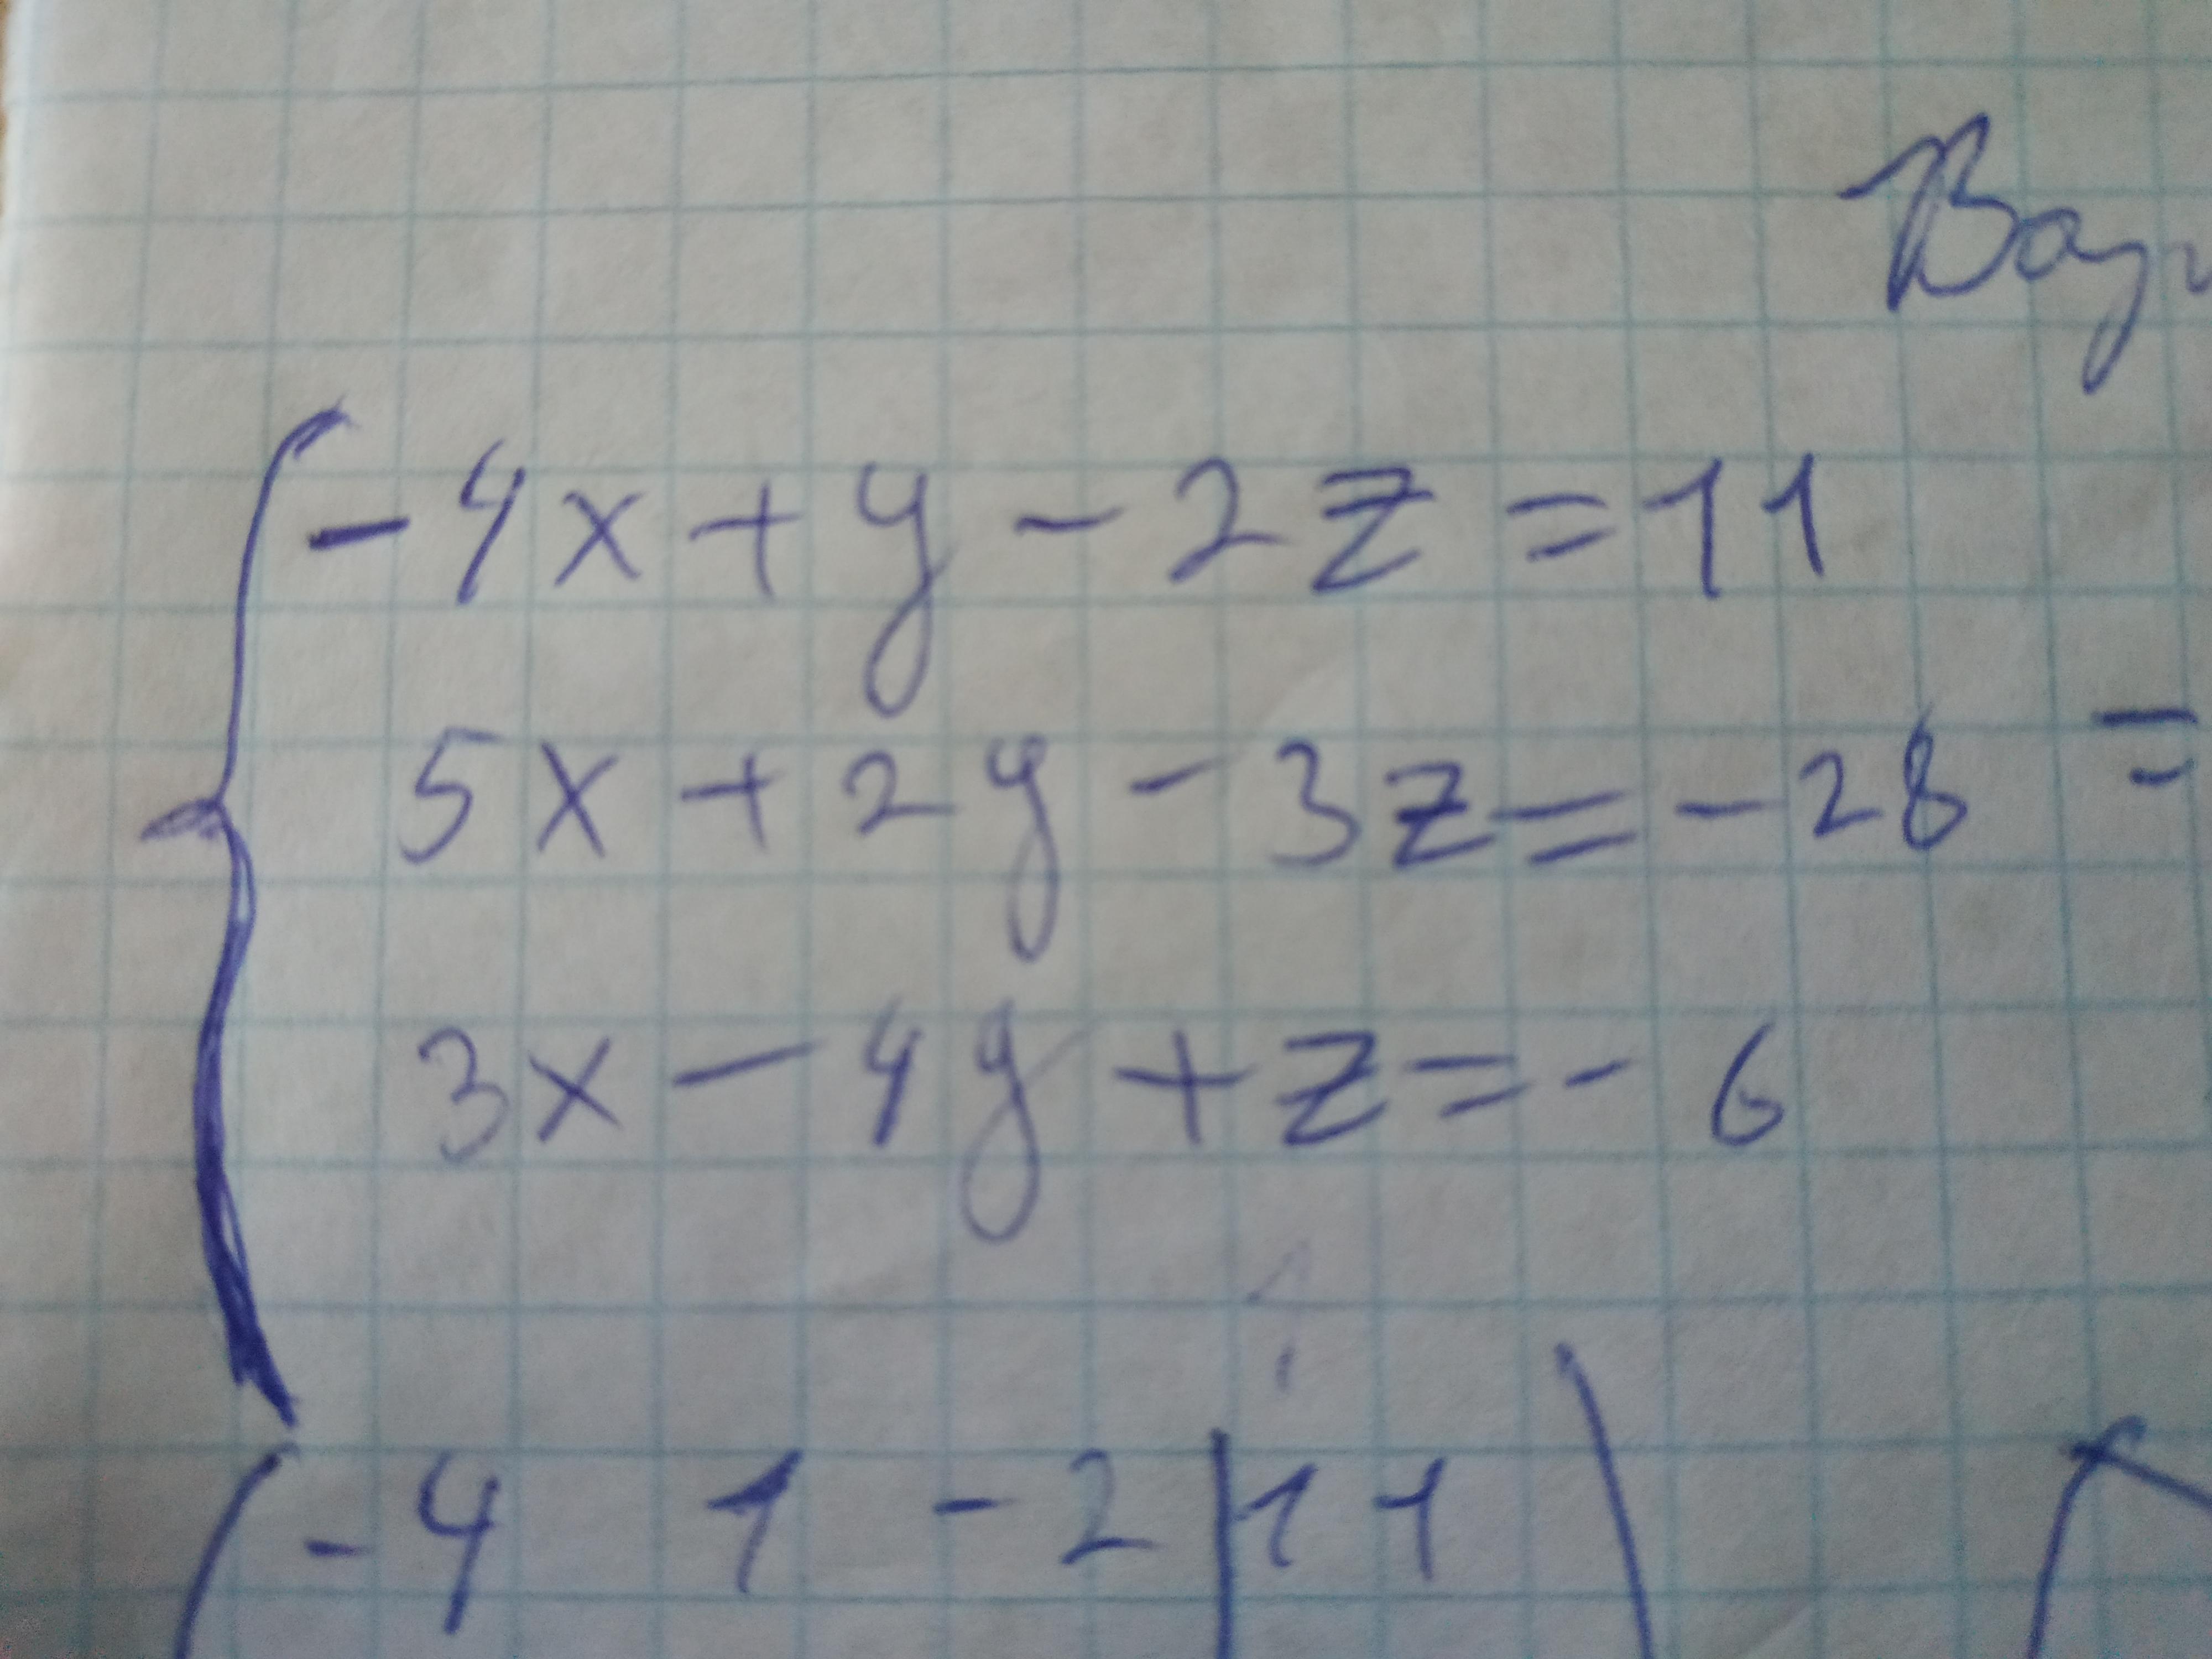 -4x+y-2z=11
5x+2y-3z=-28 =
3x-4y+z=-6
-4 1 -2|11